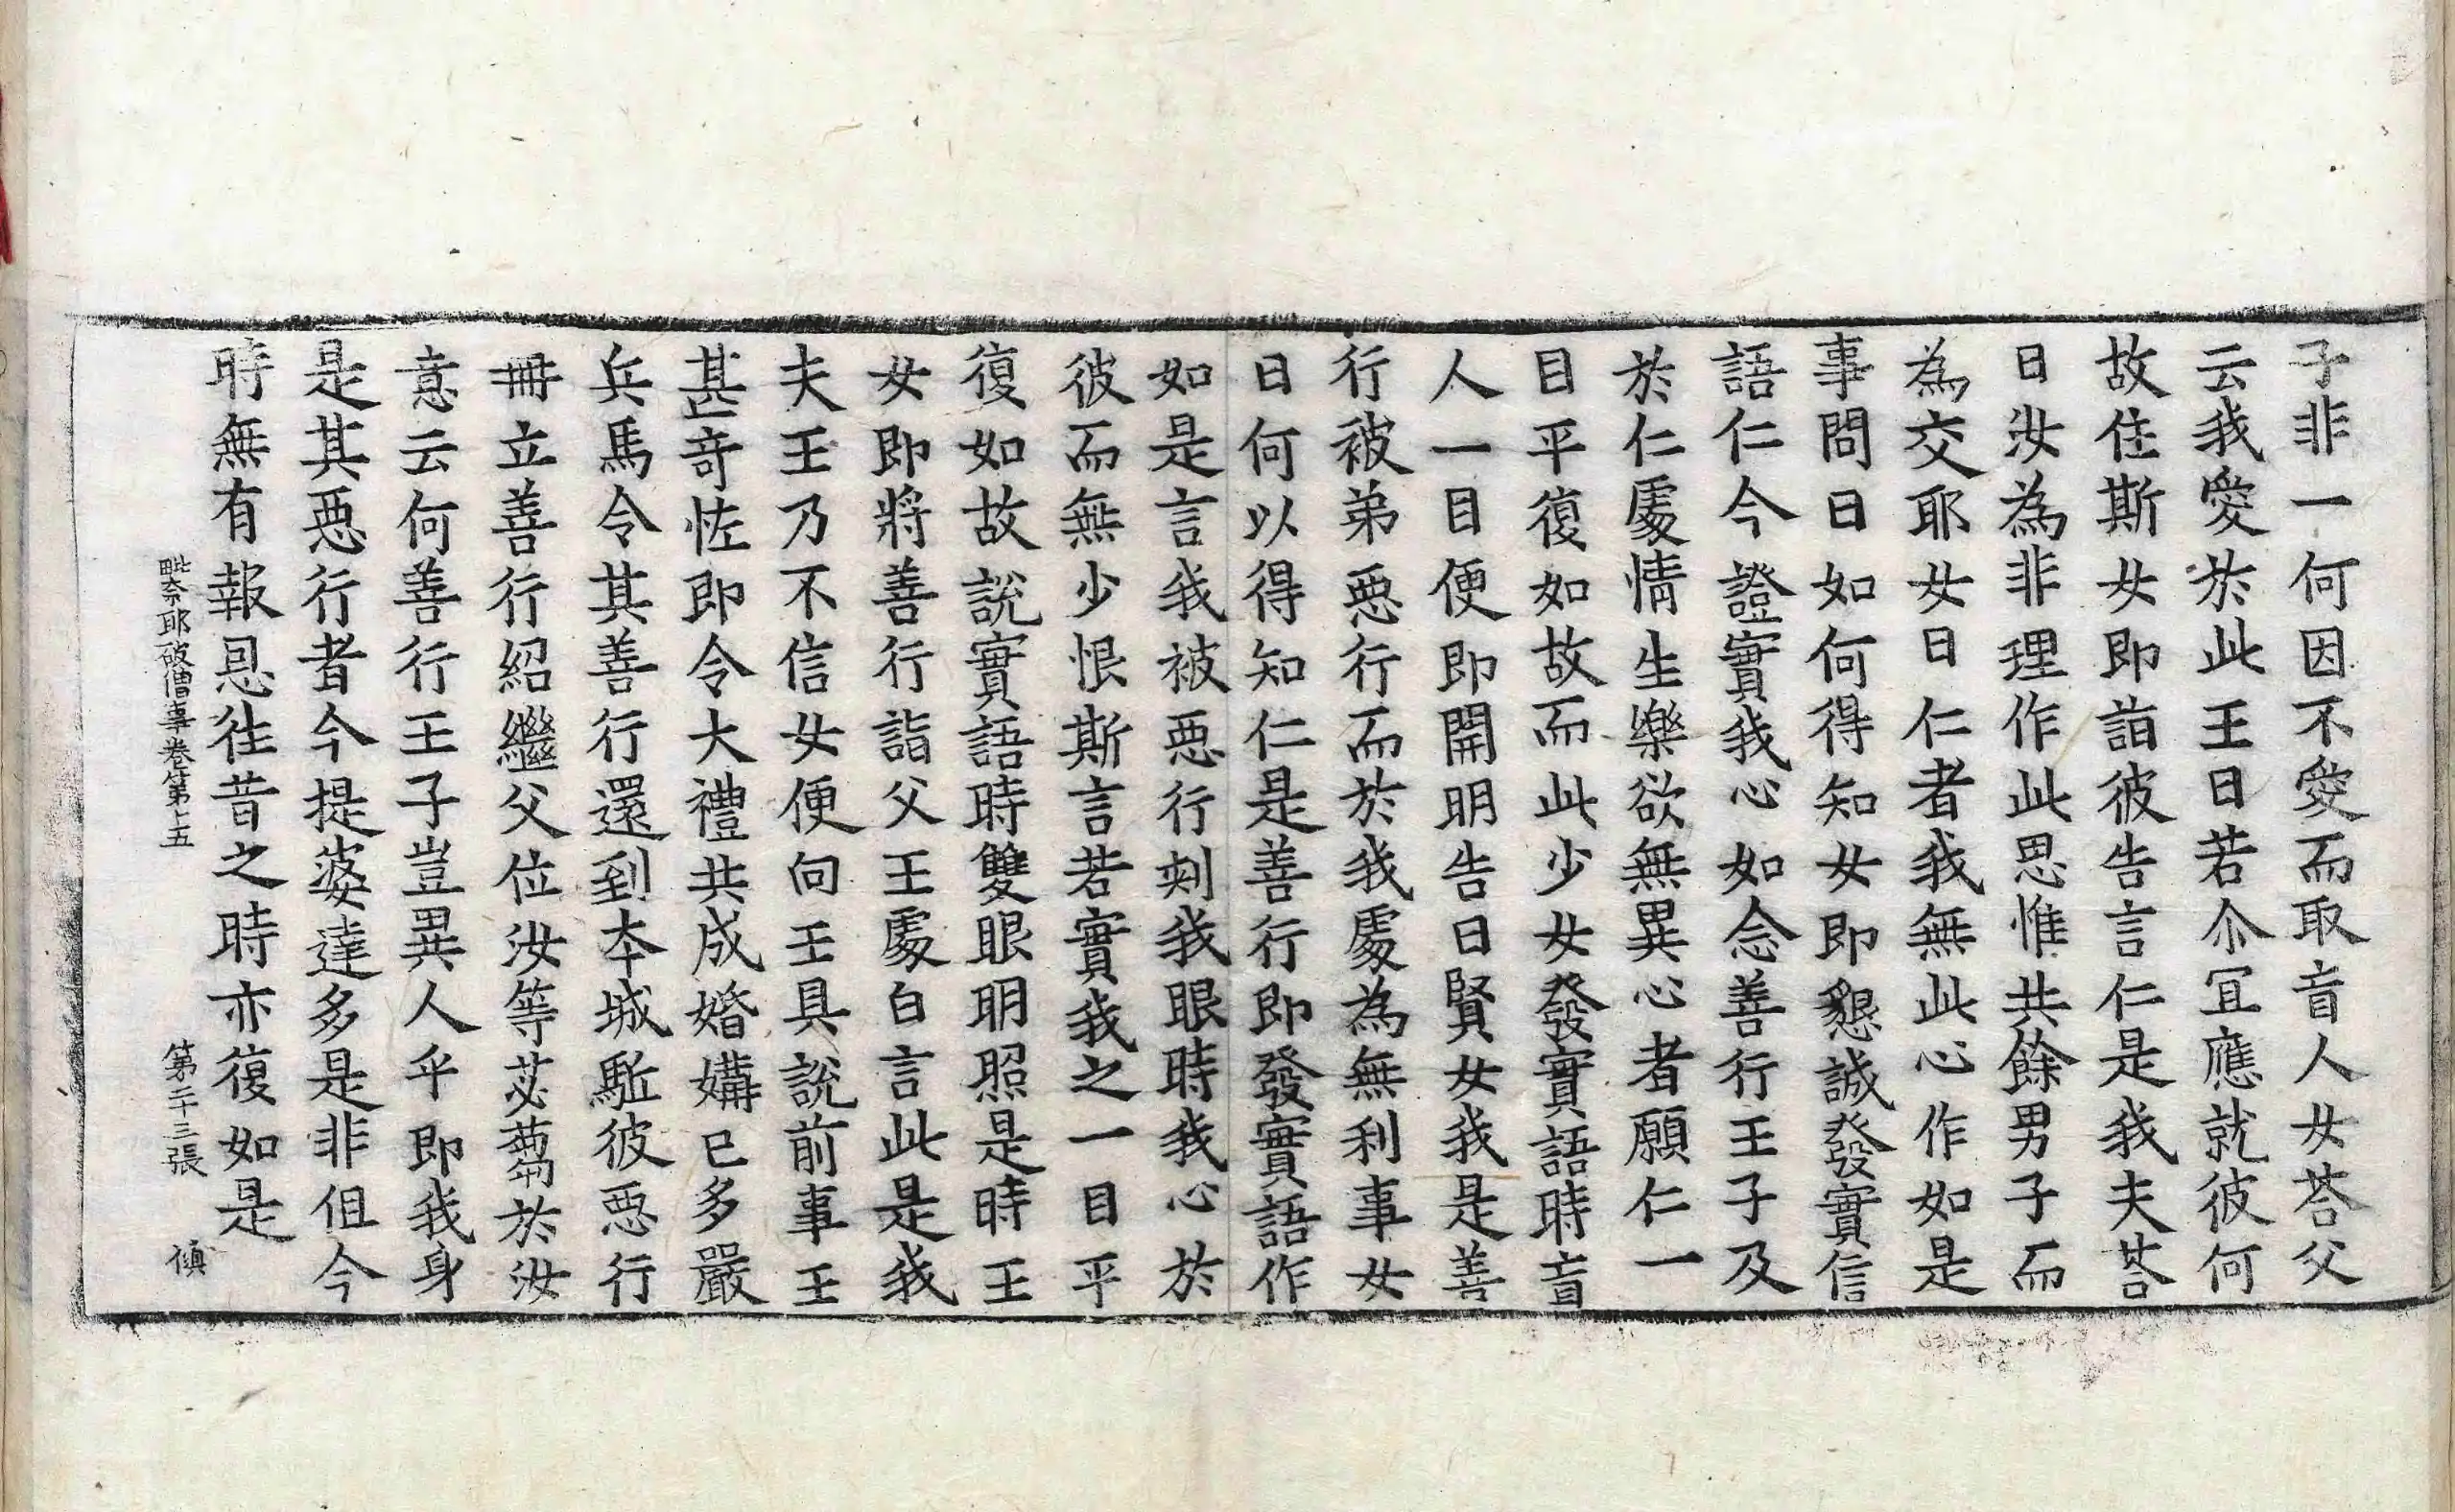 子非一何因不愛而取盲人女荅父
云我愛於此王曰若尒冝應就彼何
故住斯女即詣彼告言仁是我夫荅
曰汝為非理作此思惟共餘男子而
為交耶女曰仁者我無此心作如是
事問曰如何得知女即懇誠發實信
語仁今證實我心如念善行王子及
於仁處情生樂欲無異心者願仁一
目平復如故而此少女發實語時盲
人一目便即開明告曰賢女我是善
行被弟惡行而於我處為無利事女
曰何以得知仁是善行即發實語作
如是言我被惡行刾我眼時我心於
彼而無少恨斯言若實我之一目平
復如故說實語時雙眼明照是時王
女即將善行詣父王處白言此是我
夫王乃不信女便向王具說前事王
甚竒恠即令大禮共成婚媾已多嚴
兵馬令其善行還到本城駈彼惡行
冊立善行紹繼父位汝等苾蒭於汝
意云何善行王子豈異人乎即我身
是其惡行者今提婆達多是非但今
時無有報恩徃昔之時亦復如是
毗奈耶破僧事卷第十五 第二十三張 儀